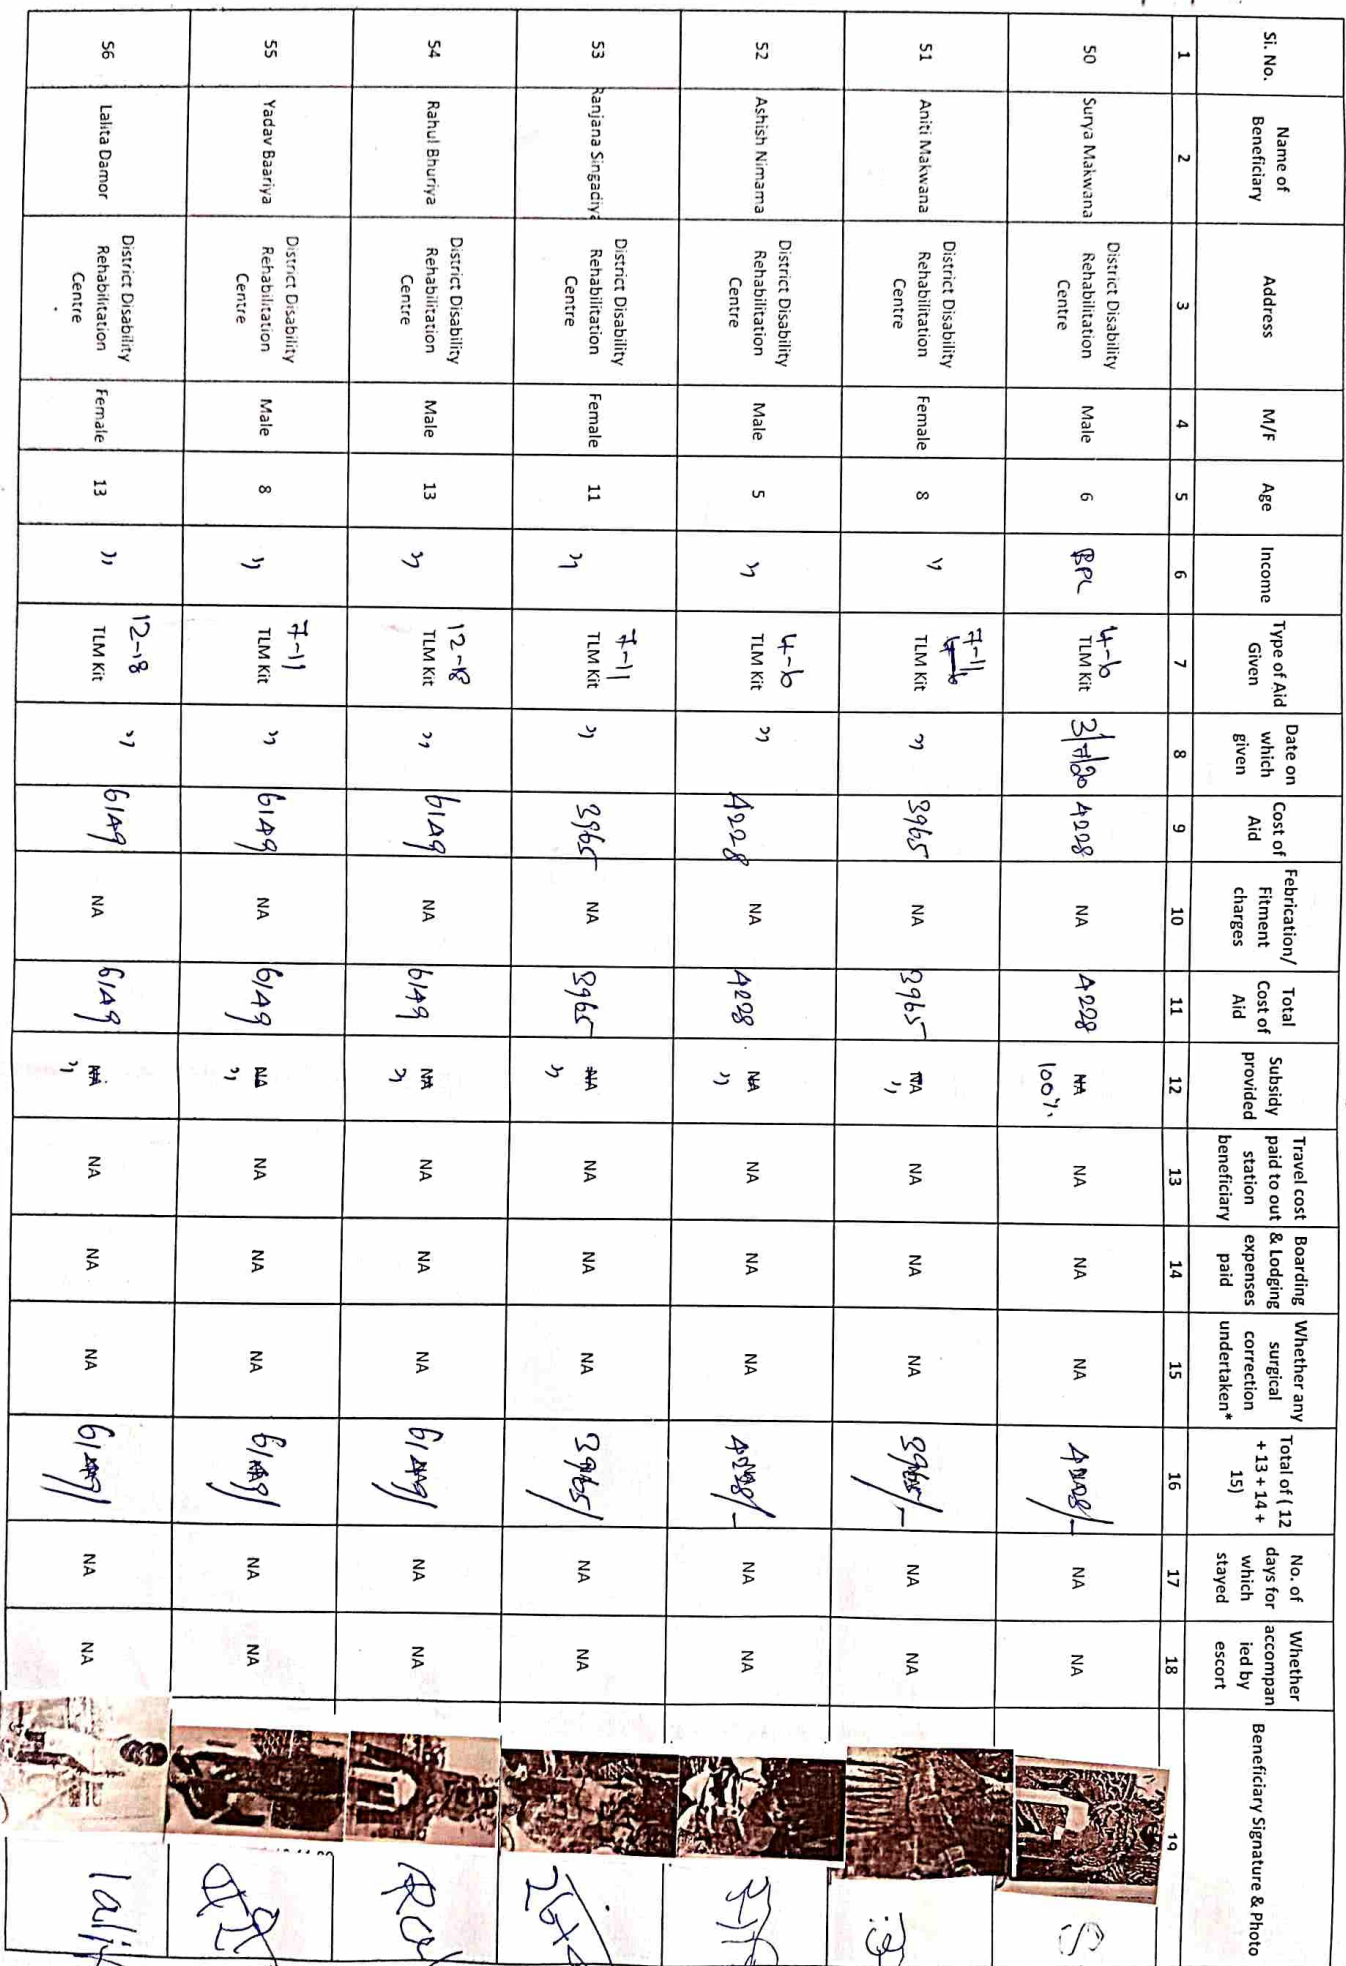 Si. No. Name of Beneficiary Address M/F Age Income Type of Aid Given Date on which given Cost of Aid Febrication/ Fitment charges Total Cost of Aid Subsidy provided Travel cost paid to out station beneficiary Boarding & Lodging expenses paid Whether any surgical correction undertaken* Total of ( 12 + 13 + 14 + 15) No. of days for which stayed Whether accompan ied by escort Beneficiary Signature & Photo
1 2 3 4 5 6 7 8 9 10 11 12 13 14 15 16 17 18 19
50 Surya Makwana District Disability Rehabilitation Centre Male 6 BPL 4-6 TLM Kit 31/7/20 4228 NA 4228 NA 100% NA NA NA 4228/- NA NA
51 Aniti Makwana District Disability Rehabilitation Centre Female 8 ,, 7-11 TLM Kit ,, 3965 NA 3965 NA ,, NA NA NA 3965/- NA NA
52 Ashish Nimama District Disability Rehabilitation Centre Male 5 ,, 4-6 TLM Kit ,, 4228 NA 4228 NA ,, NA NA NA 4228/- NA NA
53 Ranjana Singadiya District Disability Rehabilitation Centre Female 11 ,, 7-11 TLM Kit ,, 3965 NA 3965 NA ,, NA NA NA 3965/ NA NA
54 Rahul Bhuriya District Disability Rehabilitation Centre Male 13 ,, 12-18 TLM Kit ,, 6149 NA 6149 NA ,, NA NA NA 6149/ NA NA
55 Yadav Baariya District Disability Rehabilitation Centre Male 8 ,, 7-11 TLM Kit ,, 6149 NA 6149 NA ,, NA NA NA 6149/ NA NA
56 Lalita Damor District Disability Rehabilitation Centre Female 13 ,, 12-18 TLM Kit ,, 6149 NA 6149 NA ,, NA NA NA 6149/ NA NA